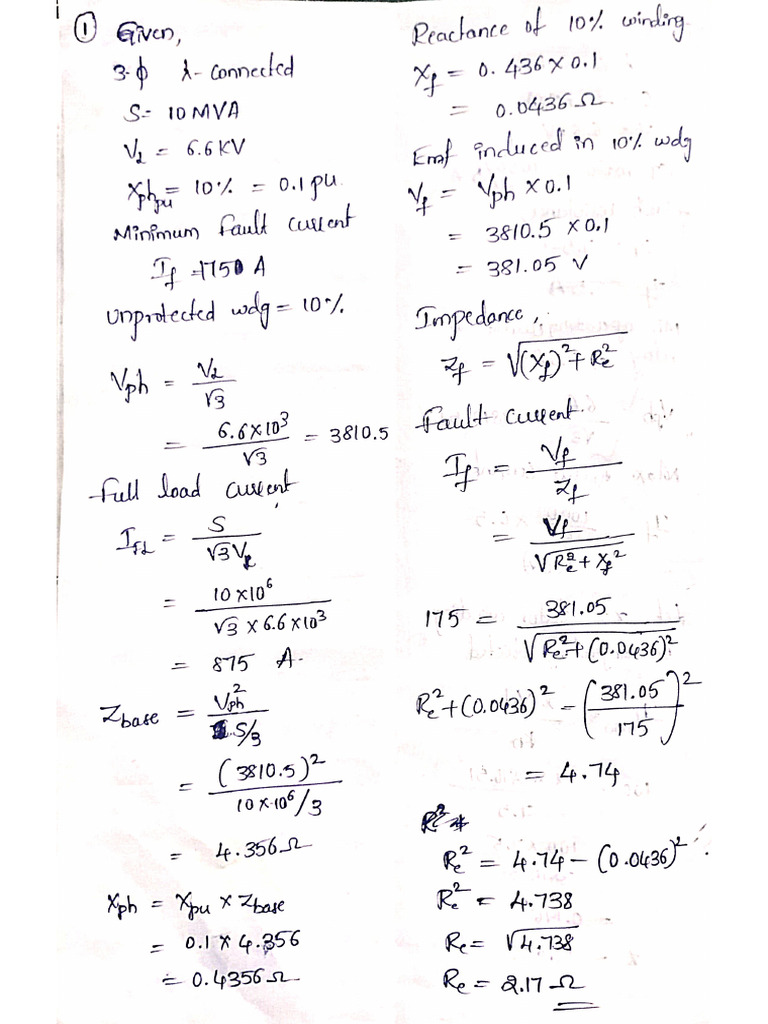 ① Given,
3-ϕ ⅄-connected
S= 10 MVA
V₂ = 6.6 KV
Xph pu = 10% = 0.1 pu.
Minimum fault current
If = 1750 A
unprotected wdg = 10%.
Vph = V₂/√3
= 6.6×10³/√3 = 3810.5
full load current
= S/√3V
= 10×10⁶/√3 × 6.6×10³
= 875 A.
Zbase = Vph²/S/3
= (3810.5)²/10×10⁶/3
= 4.356Ω
Xph = Xpu × Zbase
= 0.1 × 4.356
= 0.4356Ω
Reactance of 10% winding
Xf = 0.436 × 0.1
= 0.0436 Ω
Emf induced in 10% wdg
Vf = Vph × 0.1
= 3810.5 × 0.1
= 381.05 V
Impedance,
Zf = √(Xf)² + Re²
fault current
If = Vf/Zf
= Vf/√Re² + Xf²
175 = 381.05/√Re² + (0.0436)²
Re² + (0.0436)² = (381.05/175)²
= 4.74
Re² = 4.74 − (0.0436)²
Re² = 4.738
Re = √4.738
Re = 2.17 Ω